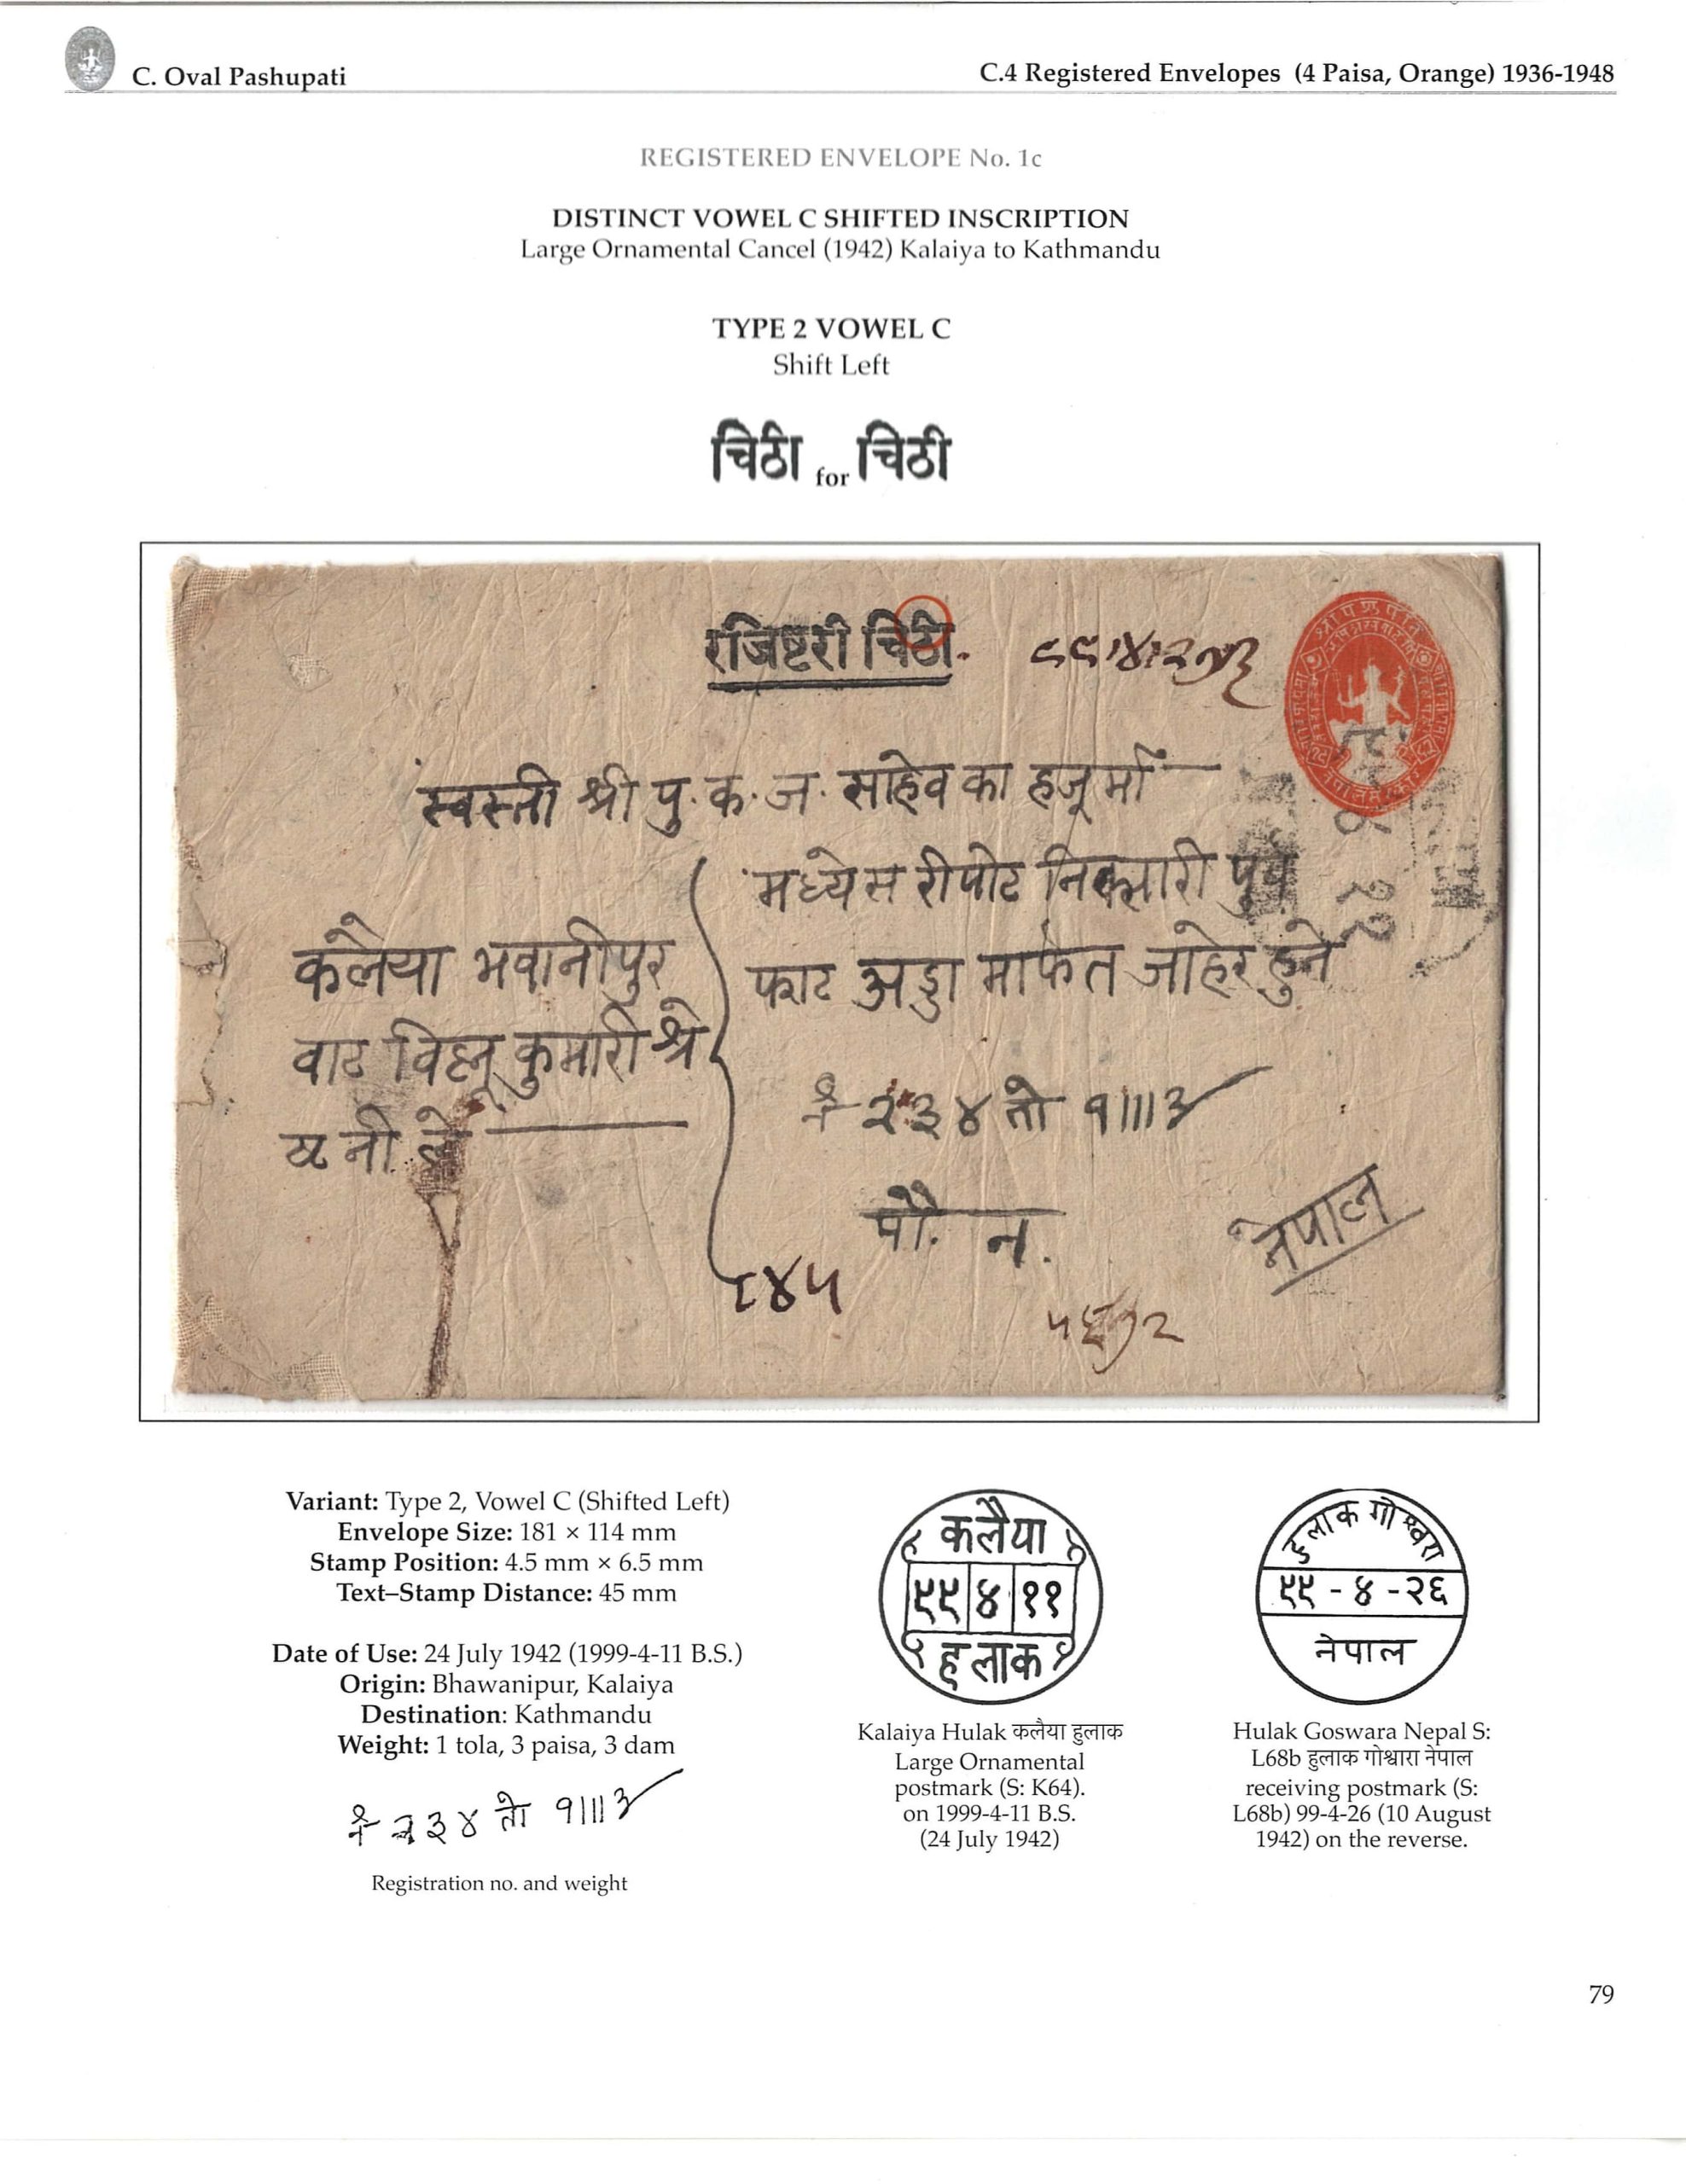 C. Oval Pashupati
C.4 Registered Envelopes (4 Paisa, Orange) 1936-1948
REGISTERED ENVELOPE No. 1c
DISTINCT VOWEL C SHIFTED INSCRIPTION
Large Ornamental Cancel (1942) Kalaiya to Kathmandu
TYPE 2 VOWEL C
Shift Left
चिठी for चिठी
रजिष्टरी चिठी.
स्वस्ती श्री पु. क. ज. साहेव का हजूर्मा
मध्येस रीपोट निकसारी पुर्व
फाट अड्डा मार्फत जाहेर हुने
कलैया भवानीपुर
वाट विष्णू कुमारी श्रे
ष्टनी ले
नं २३४ तो १॥।३
पौ. न.
नेपाल
८४५
Variant: Type 2, Vowel C (Shifted Left)
Envelope Size: 181 × 114 mm
Stamp Position: 4.5 mm × 6.5 mm
Text–Stamp Distance: 45 mm
Date of Use: 24 July 1942 (1999-4-11 B.S.)
Origin: Bhawanipur, Kalaiya
Destination: Kathmandu
Weight: 1 tola, 3 paisa, 3 dam
नं २३४ तो १॥।३
Registration no. and weight
कलैया
९९ ४ ११
हुलाक
Kalaiya Hulak कलैया हुलाक
Large Ornamental
postmark (S: K64).
on 1999-4-11 B.S.
(24 July 1942)
हुलाक गोश्वरा
९९ - ४ - २६
नेपाल
Hulak Goswara Nepal S:
L68b हुलाक गोश्वारा नेपाल
receiving postmark (S:
L68b) 99-4-26 (10 August
1942) on the reverse.
79